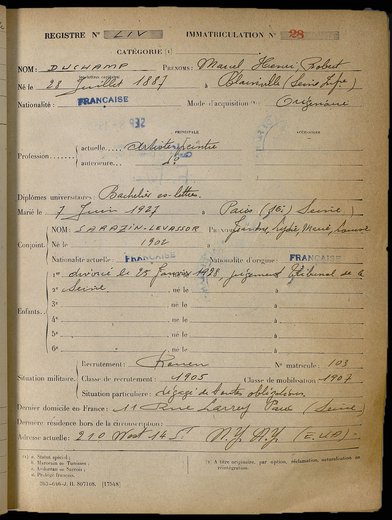 REGISTRE N° LIV IMMATRICULATION N° 28
CATÉGORIE (1)
NOM: DUCHAMP PRÉNOMS: Marcel, Henri, Robert
Né le 28 Juillet 1887 à Blainville (Seine Infre)
Nationalité: FRANÇAISE Mode d'acquisition Originaire
PRINCIPALE ACCESSOIRE
Profession actuelle Artiste peintre
antérieure d°
Diplômes universitaires: Bachelier es-lettres.
Marié le 7 Juin 1927 à Paris (Seine)
NOM: SARAZIN-LEVASSOR PRÉNOMS: Lydie, Marie,
Conjoint. Né le 1902 à
Nationalité actuelle: FRANÇAISE Nationalité d'origine: FRANÇAISE
1° divorcé le 25 Janvier 1928, jugement Tribunal de la
2° Seine. né le à
Enfants: 3° né le à
4° né le à
5° né le à
6° né le à
Recrutement: Rouen N° matricule: 103
Situation militaire. Classe de recrutement: 1905 Classe de mobilisation: 1907
Situation particulière: dégagé de toutes obligations.
Dernier domicile en France: 11 Rue Larrey Paris (Seine)
Dernière résidence hors de la circonscription:
Adresse actuelle: 210 West 14 St N.Y. N.Y. (E.U.A)
(1) a. Statut spécial;
b. Marocain ou Tunisien;
d. Protégé français.
(2) A titre originaire, par option, réclamation, naturalisation ou réintégration.